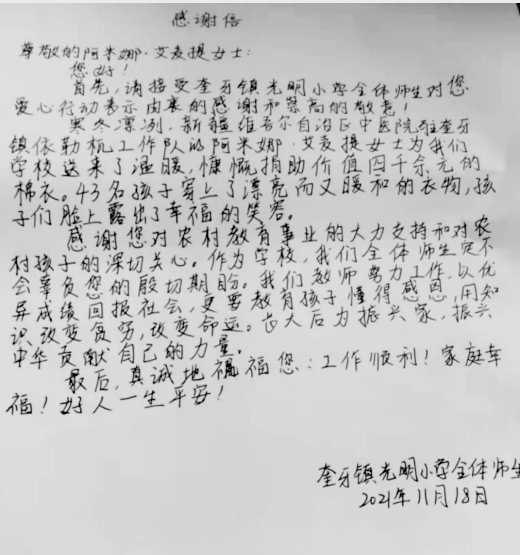 感谢信
尊敬的阿米娜·艾麦提女士:
您好!
首先,请接受奎牙镇光明小学全体师生对您
爱心行动表示由衷的感谢和崇高的敬意!
寒冬凛冽,新疆维吾尔自治区中医院驻奎牙
镇依勒杭工作队的阿米娜·艾麦提女士为我们
学校送来了温暖,慷慨捐助价值四千余元的
棉衣。43名孩子穿上了漂亮而又暖和的衣物,孩
子们脸上露出了幸福的笑容。
感谢您对农村教育事业的大力支持和对农
村孩子的深切关心。作为学校,我们全体师生定不
会辜负您的殷切期盼。我们教师努力工作,以优
异成绩回报社会,更要教育孩子懂得感恩,用知
识改变贫穷,改变命运。长大后为振兴家,振兴
中华贡献自己的力量。
最后,真诚地祝福您:工作顺利!家庭幸
福!好人一生平安!
奎牙镇光明小学全体师生
2021年11月18日